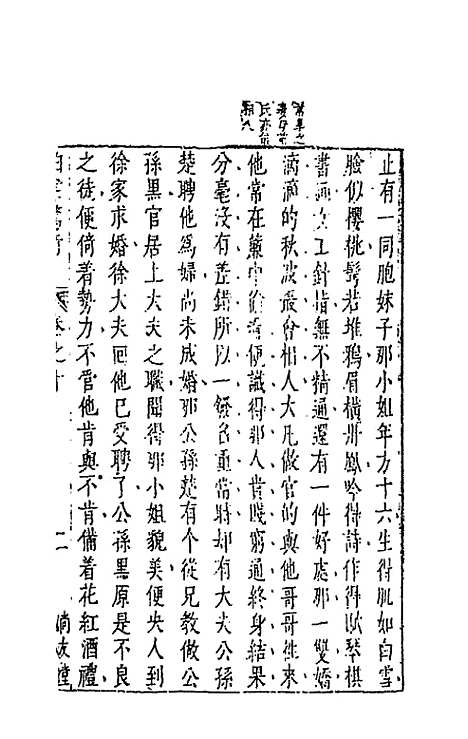 止有一同胞妹子那小姐年方十六生得肌如白雪
臉似櫻桃鬢若堆鴉眉橫丹鳳吟得詩作得賦琴棋
書畫女工針指無不精通還有一件好處那一雙嬌
滴滴的秋波最會相人大凡做官的與他哥哥往來
他常在簾中偷看便識得那人貴賤窮通終身結果
分毫沒有差錯所以一發名重當時却有大夫公孫
楚聘他為婦尚未成婚那公孫楚有个從兄教做公
孫黑官居上大夫之職聞得那小姐貌美便央人到
徐家求婚徐大夫回他已受聘了公孫黑原是不良
之徒便倚着勢力不管他肯與不肯備着花紅酒禮
卷之首 二